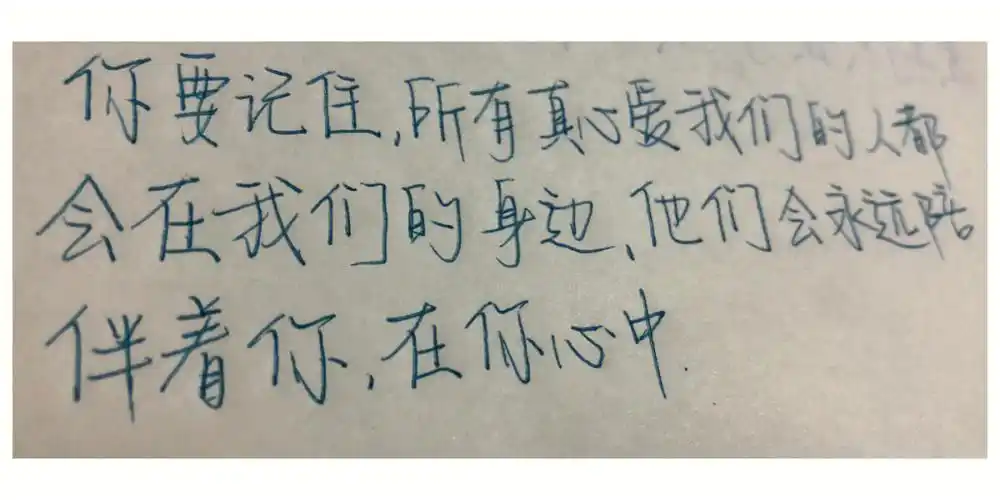 你要记住,所有真心爱我们的人都
会在我们的身边,他们会永远陪
伴着你,在你心中.